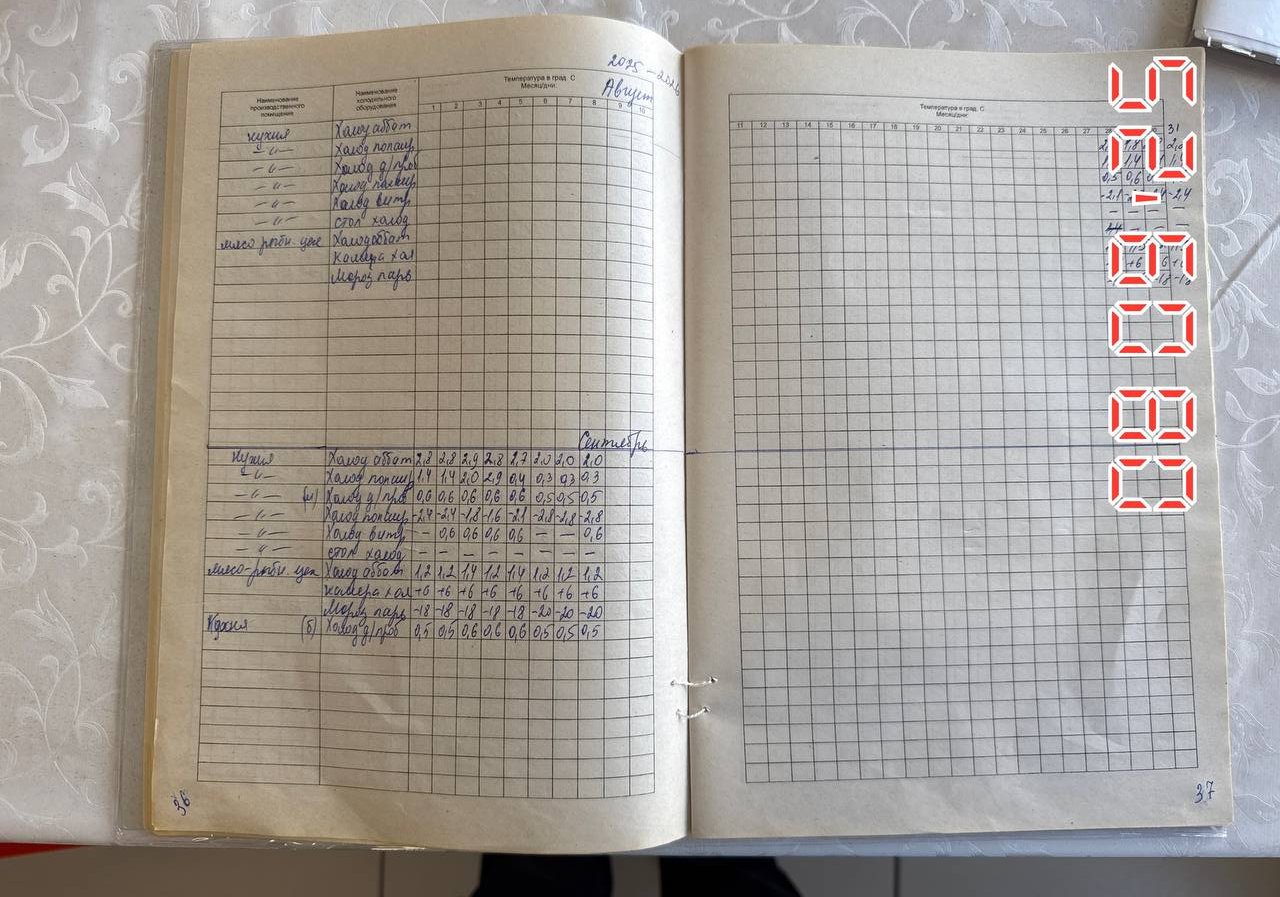 2025-2026
Август
Наименование производственного помещения
Наименование холодильного оборудования
Температура в град. С
Месяц/дни:
1 2 3 4 5 6 7 8 9 10
кухня Холод аббат
–"– Холод попаир
–"– Холод д/проб
–"– Холод попаир
–"– Холод витр
–"– стол холод
мясо рыбн. цех Холод аббат
Камера хол
Мороз ларь
Сентябрь
кухня Холод аббат 2,8 2,8 2,9 2,8 2,7 2,0 2,0 2,0
–"– Холод попаир 1,4 1,4 2,0 2,9 0,4 0,3 0,3 0,3
–"– (м) Холод д/проб 0,6 0,6 0,6 0,6 0,6 0,5 0,5 0,5
–"– Холод попаир -2,4 -2,4 -1,8 -1,6 -2,1 -2,8 -2,8 -2,8
–"– Холод витр – 0,6 0,6 0,6 0,6 – – 0,6
–"– стол холод – – – – – – – –
мясо-рыбн. цех Холод аббат 1,2 1,2 1,4 1,2 1,4 1,2 1,2 1,2
камера хол +6 +6 +6 +6 +6 +6 +6 +6
Мороз ларь -18 -18 -18 -18 -18 -20 -20 -20
Кухня (б) Холод д/проб 0,5 0,5 0,6 0,6 0,6 0,5 0,5 0,5
36
Температура в град. С
Месяц/дни:
11 12 13 14 15 16 17 18 19 20 21 22 23 24 25 26 27 31
-2,4
– – – –
37
08 09-25